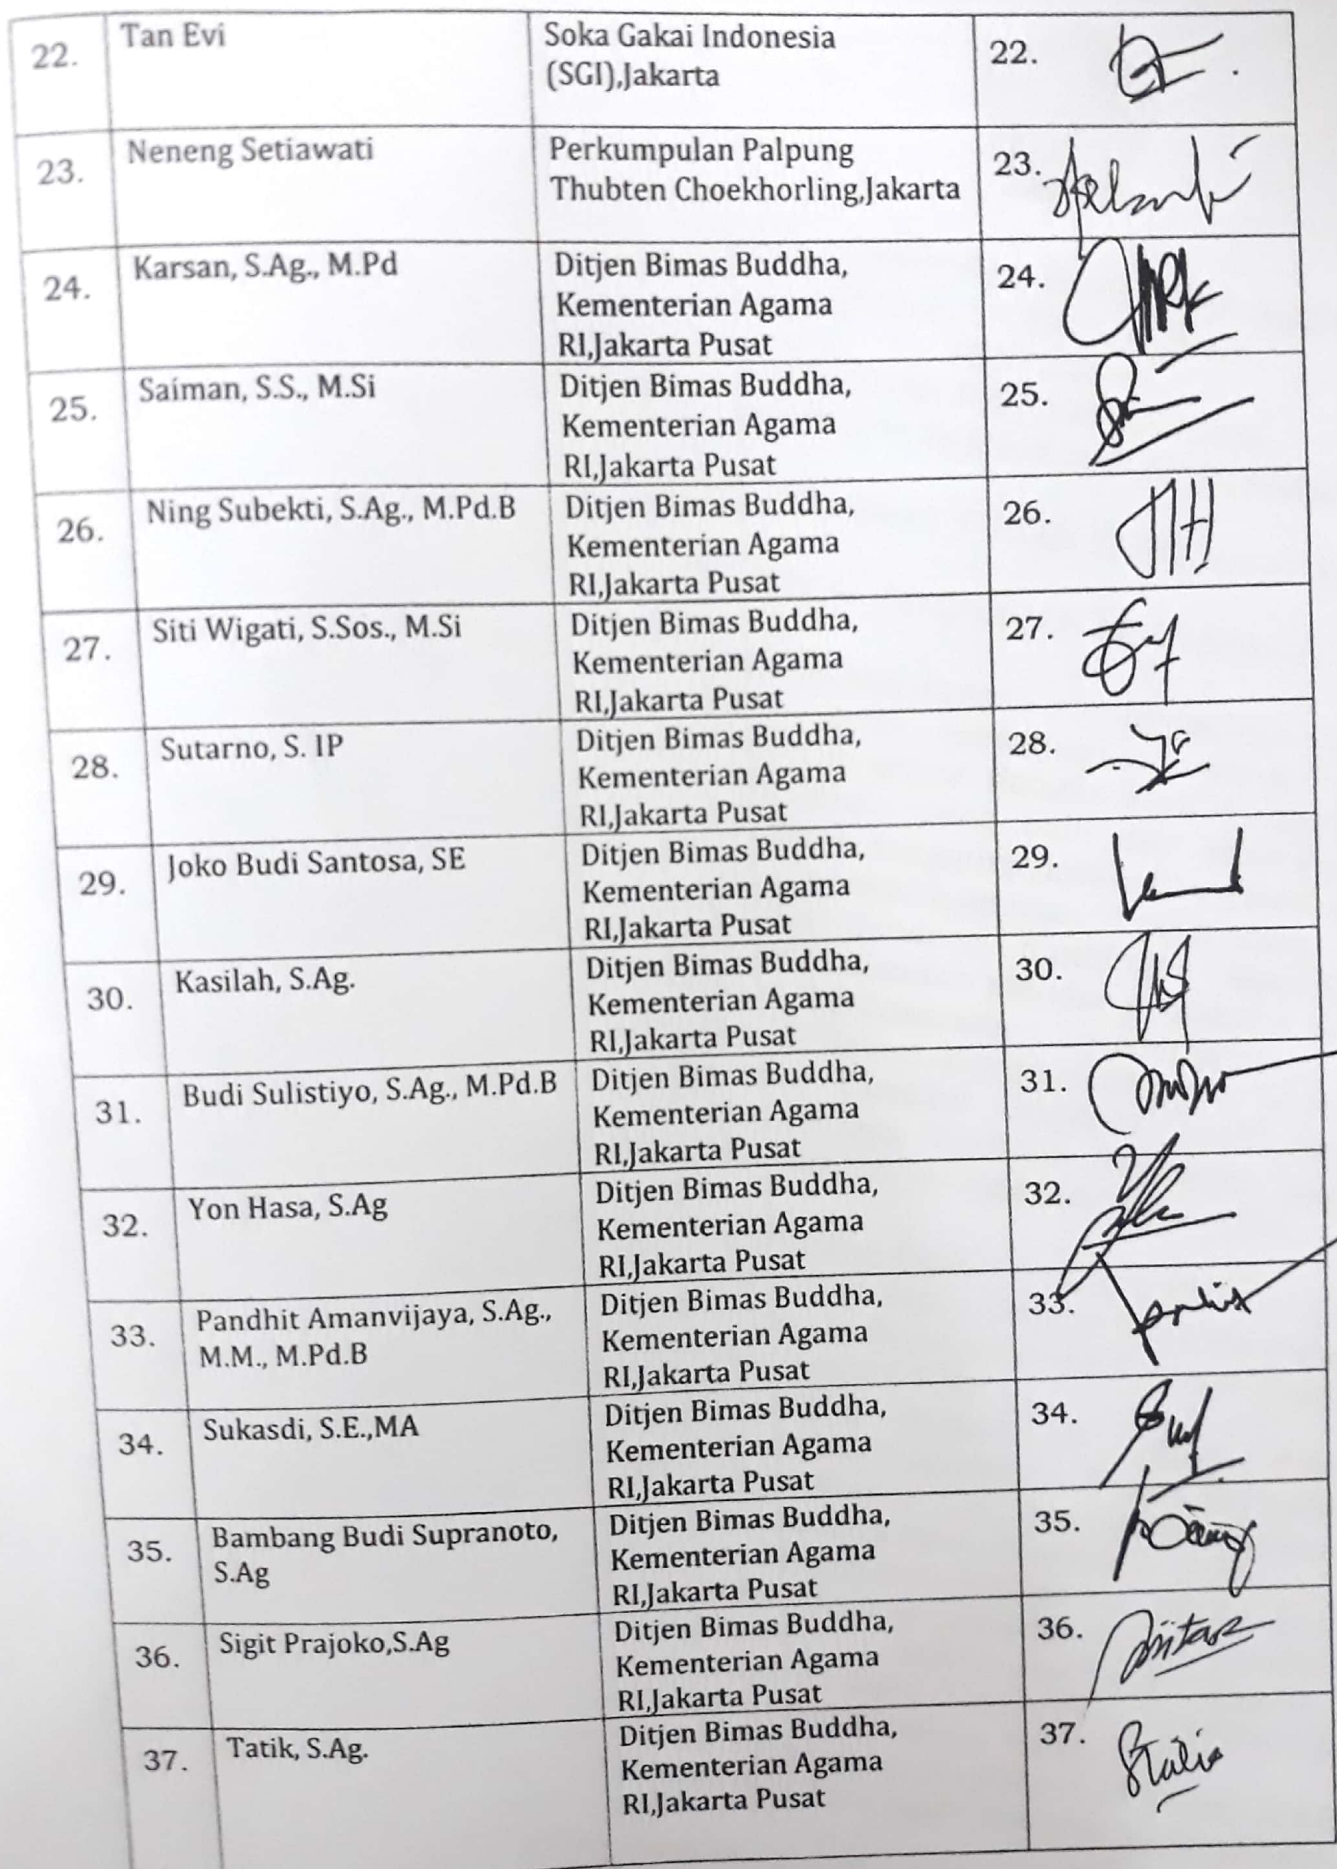 22. Tan Evi Soka Gakai Indonesia 22.
(SGI),Jakarta
23. Neneng Setiawati Perkumpulan Palpung 23.
Thubten Choekhorling,Jakarta
24. Karsan, S.Ag., M.Pd Ditjen Bimas Buddha, 24.
Kementerian Agama
RI,Jakarta Pusat
25. Saiman, S.S., M.Si Ditjen Bimas Buddha, 25.
Kementerian Agama
RI,Jakarta Pusat
26. Ning Subekti, S.Ag., M.Pd.B Ditjen Bimas Buddha, 26.
Kementerian Agama
RI,Jakarta Pusat
27. Siti Wigati, S.Sos., M.Si Ditjen Bimas Buddha, 27.
Kementerian Agama
RI,Jakarta Pusat
28. Sutarno, S. IP Ditjen Bimas Buddha, 28.
Kementerian Agama
RI,Jakarta Pusat
29. Joko Budi Santosa, SE Ditjen Bimas Buddha, 29.
Kementerian Agama
RI,Jakarta Pusat
30. Kasilah, S.Ag. Ditjen Bimas Buddha, 30.
Kementerian Agama
RI,Jakarta Pusat
31. Budi Sulistiyo, S.Ag., M.Pd.B Ditjen Bimas Buddha, 31.
Kementerian Agama
RI,Jakarta Pusat
32. Yon Hasa, S.Ag Ditjen Bimas Buddha, 32.
Kementerian Agama
RI,Jakarta Pusat
33. Pandhit Amanvijaya, S.Ag., Ditjen Bimas Buddha, 33.
M.M., M.Pd.B Kementerian Agama
RI,Jakarta Pusat
34. Sukasdi, S.E.,MA Ditjen Bimas Buddha, 34.
Kementerian Agama
RI,Jakarta Pusat
35. Bambang Budi Supranoto, Ditjen Bimas Buddha, 35.
S.Ag Kementerian Agama
RI,Jakarta Pusat
36. Sigit Prajoko,S.Ag Ditjen Bimas Buddha, 36.
Kementerian Agama
RI,Jakarta Pusat
37. Tatik, S.Ag. Ditjen Bimas Buddha, 37.
Kementerian Agama
RI,Jakarta Pusat